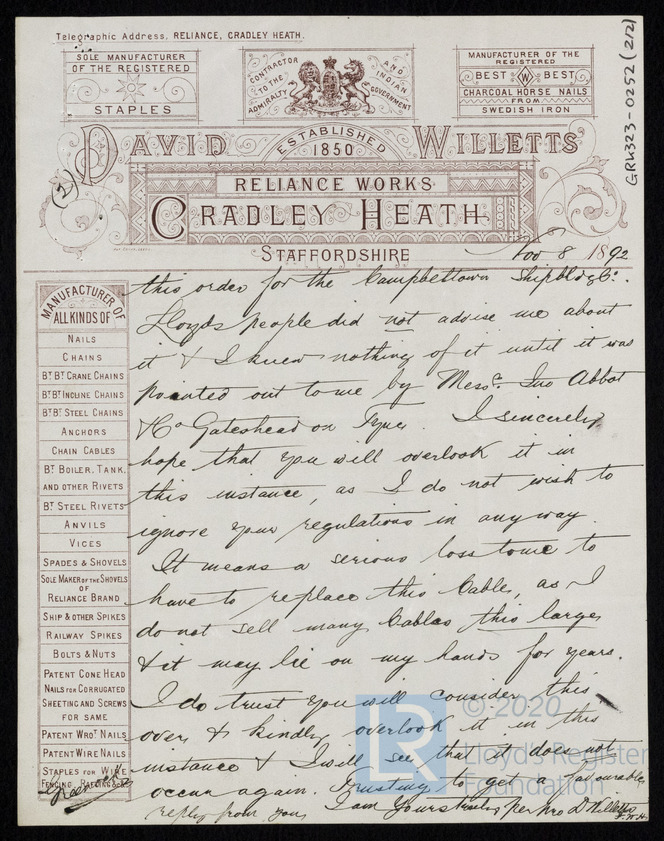 Telegraphic Address, RELIANCE, CRADLEY HEATH.
SOLE MANUFACTURER
OF THE REGISTERED
STAPLES
CONTRACTOR
TO THE
ADMIRALTY
AND
INDIAN
GOVERNMENT
MANUFACTURER OF THE
REGISTERED
BEST W BEST
CHARCOAL HORSE NAILS
FROM
SWEDISH IRON
GRK323-0252 (2/2)
(2)
DAVID WILLETTS
ESTABLISHED
1850
RELIANCE WORKS
CRADLEY HEATH
STAFFORDSHIRE
Nov 8 1892
MANUFACTURER OF
ALL KINDS OF
NAILS
CHAINS
BT BT CRANE CHAINS
BT BT INCLINE CHAINS
BT BT STEEL CHAINS
ANCHORS
CHAIN CABLES
BT BOILER, TANK,
AND OTHER RIVETS
BT STEEL RIVETS
ANVILS
VICES
SPADES & SHOVELS
SOLE MAKER OF THE SHOVELS
OF
RELIANCE BRAND
SHIP & OTHER SPIKES
RAILWAY SPIKES
BOLTS & NUTS
PATENT CONE HEAD
NAILS FOR CORRUGATED
SHEETING AND SCREWS
FOR SAME
PATENT WROT NAILS
PATENT WIRE NAILS
STAPLES FOR WIRE
FENCING
this order for the Campbeltown Shipbldg Co.
Lloyds people did not advise me about
it & I knew nothing of it until it was
pointed out to me by Messrs Jno Abbot
& Co Gateshead on Tyne. I sincerely
hope that you will overlook it in
this instance, as I do not wish to
ignore your regulations in any way.
It means a serious loss to me to
have to replace this Cable, as I
do not sell many Cables this large
& it may lie on my hands for years.
I do trust you will consider this
over & kindly overlook it in this
instance & I will see that it does not
occur again. Trusting to get a favourable
reply from you I am Yours truly per pro D Willetts
F.W.H.
LR
© 2020
Lloyd's Register
Foundation